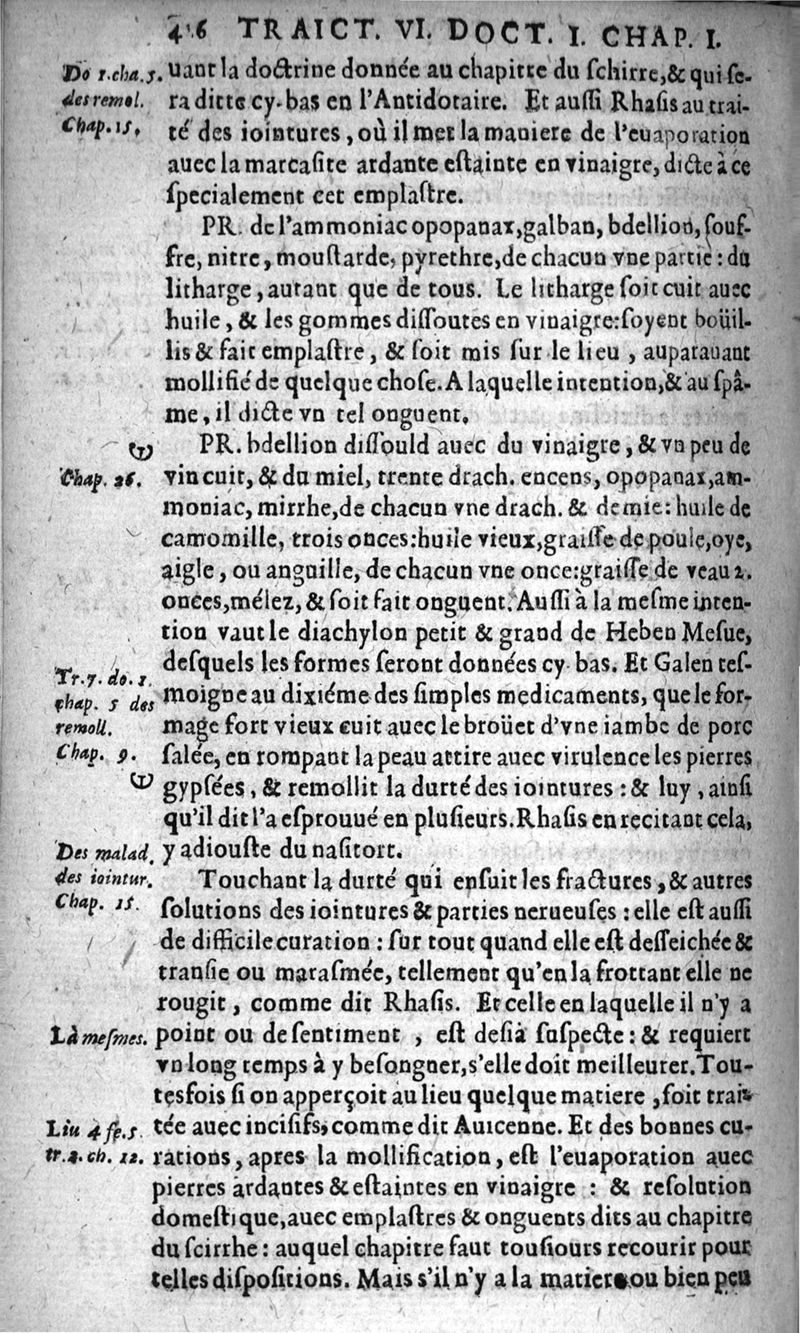 4.6 TRAICT. VI. DOCT. I. CHAP. I.
Do 1.cha.5. uant la doctrine donnée au chapitre du ſchirre,& qui ſe-
des remol. ra ditte cy-bas en l'Antidotaire. Et auſſi Rhaſis au trai-
Chap.15. té des iointures, où il met la maniere de l'euaporation
auec la marcaſite ardante eſtainte en vinaigre, dicte à ce
ſpecialement cet emplaſtre.
PR. de l'ammoniac opopanax,galban, bdellion, ſouf-
fre, nitre, mouſtarde, pyrethre,de chacun vne partie : du
litharge, autant que de tous. Le litharge ſoit cuit auec
huile, & les gommes diſſoutes en vinaigre:ſoyent boüil-
lis & fait emplaſtre, & ſoit mis ſur le lieu, auparauant
mollifié de quelque choſe. A laquelle intention,& au ſpâ-
me, il dicte vn tel onguent.
PR. bdellion diſſould auec du vinaigre, & vn peu de
Chap. 26. vin cuit, & du miel, trente drach. encens, opopanax,am-
moniac, mirrhe,de chacun vne drach. & demie: huile de
camomille, trois onces:huile vieux,graiſſe de poule,oye,
aigle, ou anguille, de chacun vne once:graiſſe de veau 2.
onces,mélez, & ſoit fait onguent. Auſſi à la meſme inten-
tion vaut le diachylon petit & grand de Heben Meſue,
Tr.7. do. 1. deſquels les formes ſeront données cy bas. Et Galen teſ-
chap. 5 des moigne au dixiéme des ſimples medicaments, que le for-
remoll. mage fort vieux cuit auec le broüet d'vne iambe de porc
Chap. 9. ſalée, en rompant la peau attire auec virulence les pierres
gypſées, & remollit la durté des iointures : & luy, ainſi
qu'il dit l'a eſprouué en pluſieurs. Rhaſis en recitant cela,
Des malad. y adiouſte du naſitort.
des iointur. Touchant la durté qui enſuit les fractures, & autres
Chap. 15. ſolutions des iointures & parties nerueuſes : elle eſt auſſi
de difficile curation : ſur tout quand elle eſt deſſeichée &
tranſie ou maraſmée, tellement qu'en la frottant elle ne
rougit, comme dit Rhaſis. Et celle en laquelle il n'y a
Là meſmes. point ou de ſentiment, eſt deſià ſuſpecte : & requiert
vn long temps à y beſongner,s'elle doit meilleurer. Tou-
tesfois ſi on apperçoit au lieu quelque matiere, ſoit trai-
Liu 4 fe.5. tée auec inciſifs, comme dit Auicenne. Et des bonnes cu-
tr.2. ch. 12. rations, apres la mollification, eſt l'euaporation auec
pierres ardantes & eſtaintes en vinaigre : & reſolution
domeſtique,auec emplaſtres & onguents dits au chapitre
du ſcirrhe : auquel chapitre faut touſiours recourir pour
telles diſpoſitions. Mais s'il n'y a la matiere ou bien peu